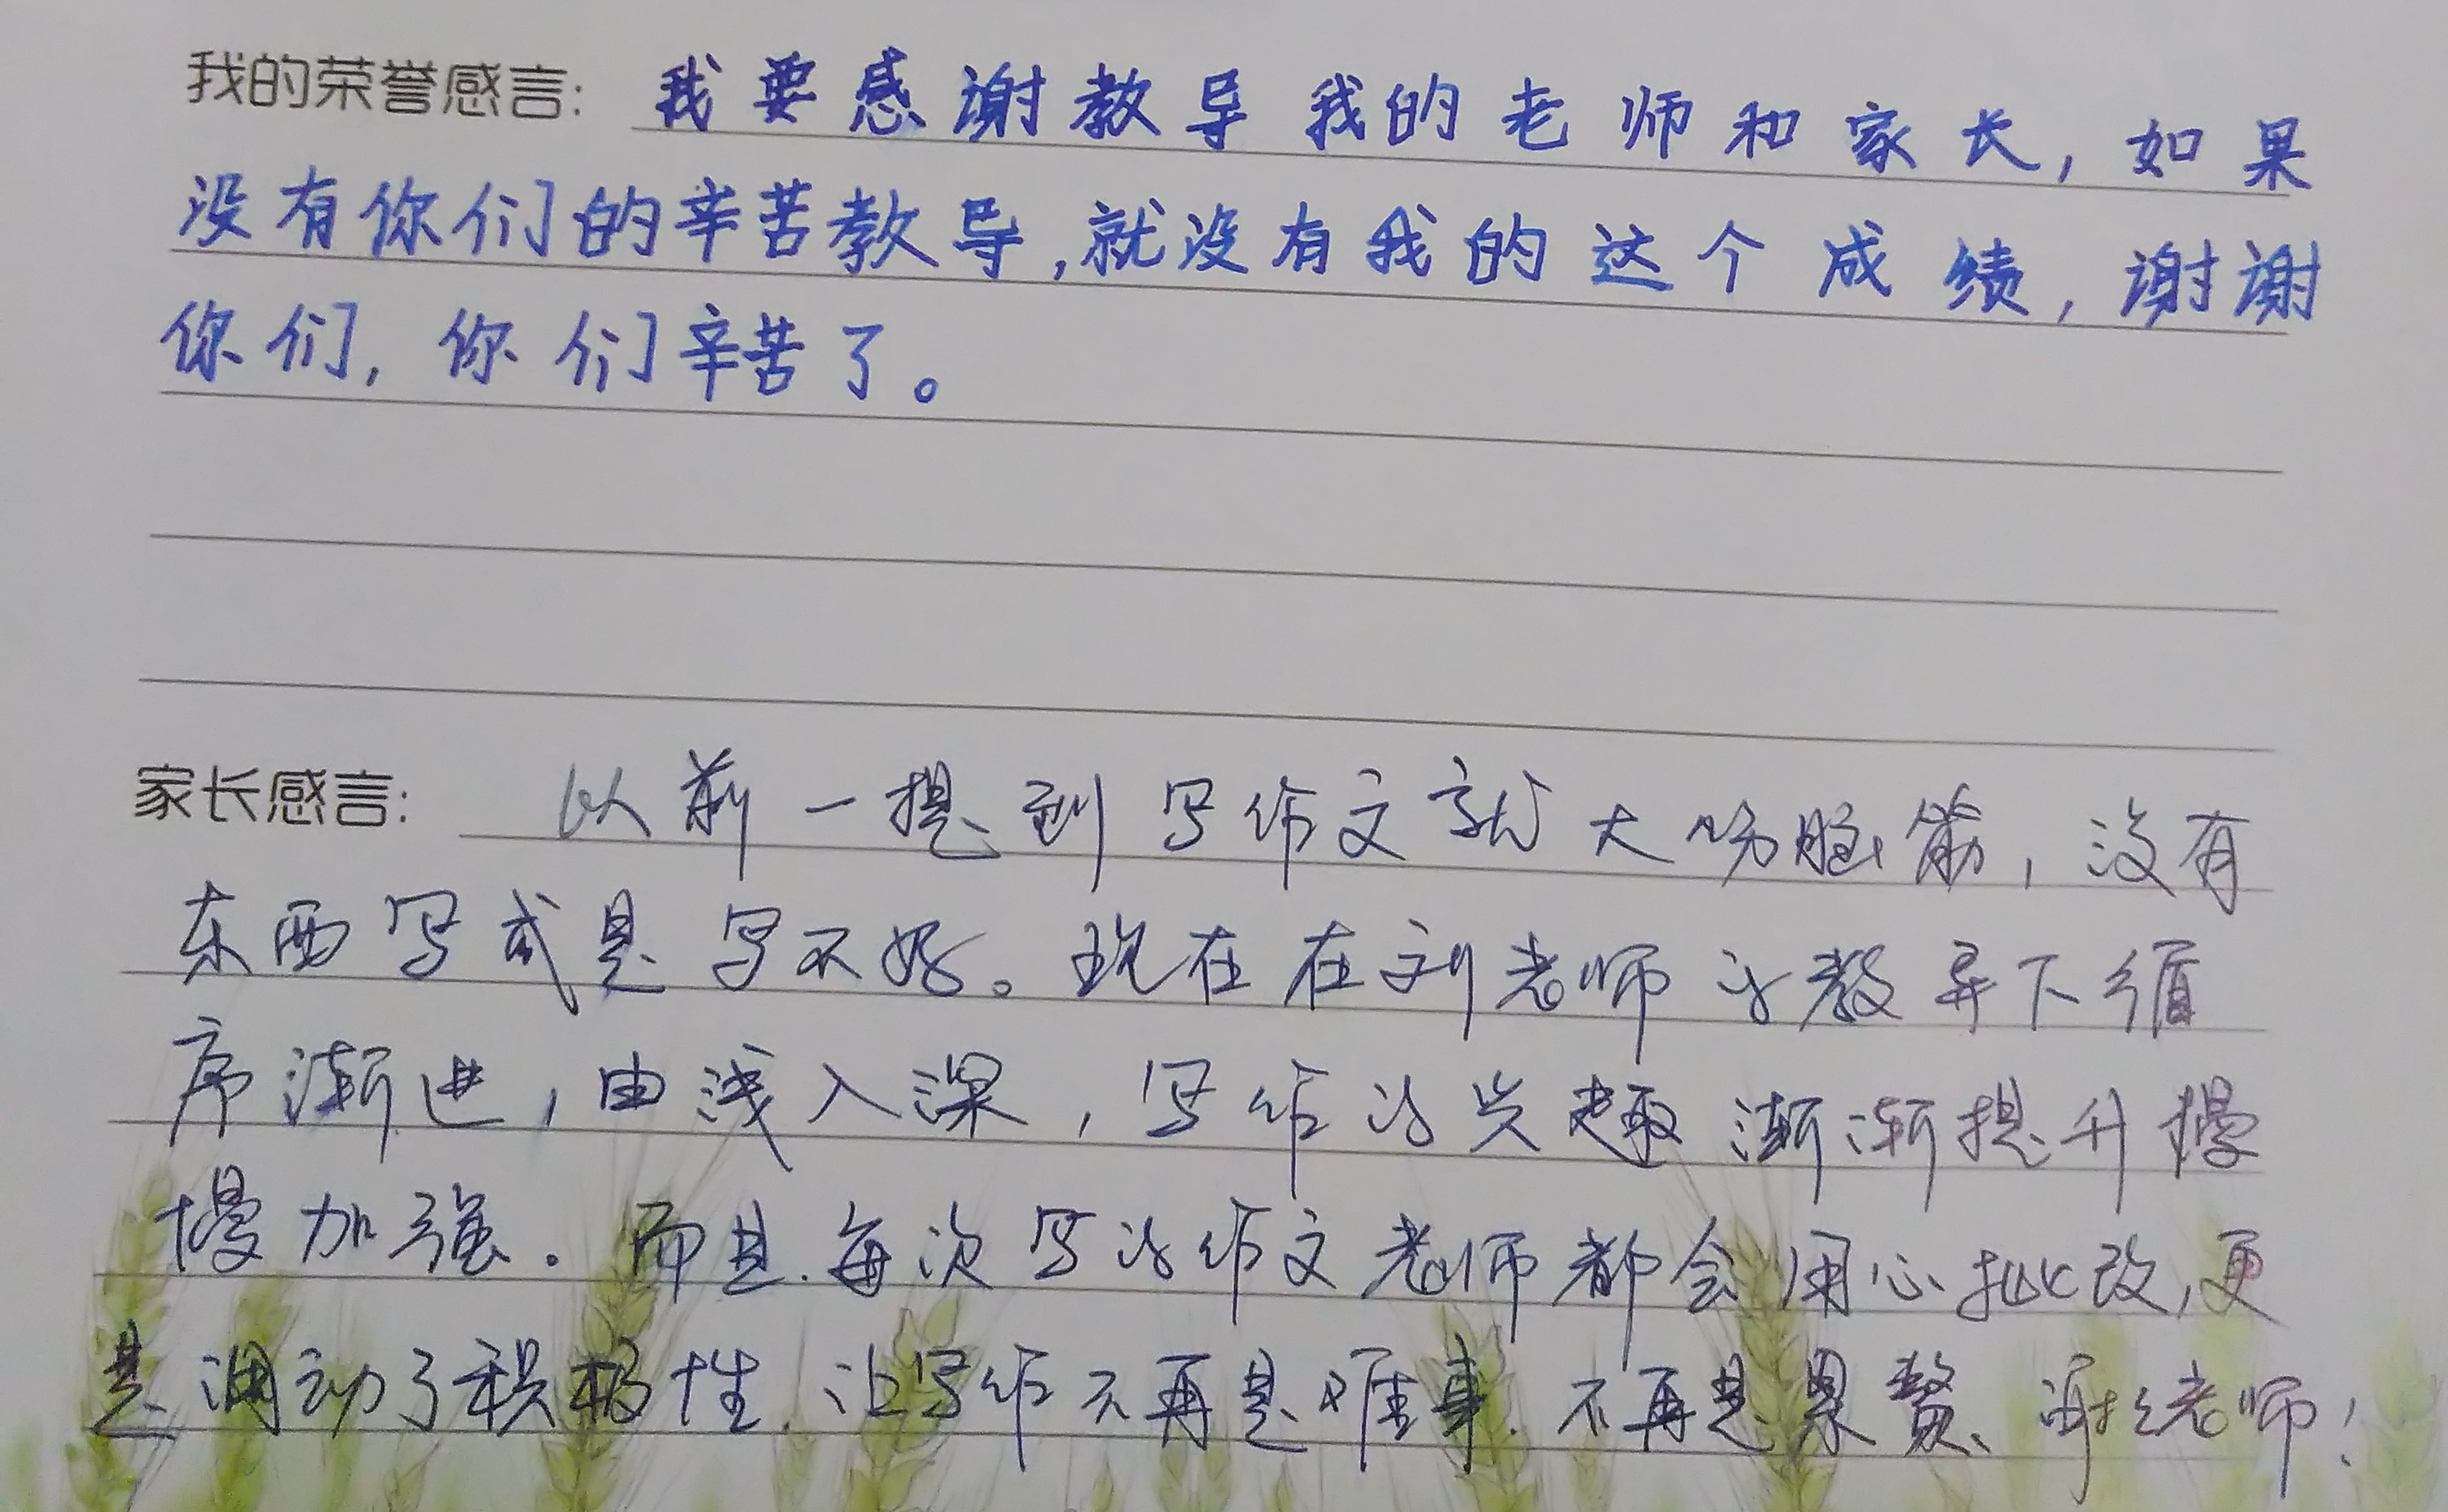 我的荣誉感言：我要感谢教导我的老师和家长，如果
没有你们的辛苦教导，就没有我的这个成绩，谢谢
你们，你们辛苦了。
家长感言：以前一提到写作文就大伤脑筋，没有
东西写或是写不好。现在在刘老师的教导下循
序渐进，由浅入深，写作的兴趣渐渐提升慢
慢加强。而且每次写的作文老师都会用心批改，更
是调动了积极性.让写作不再是难事.不再是累赘、谢谢老师！